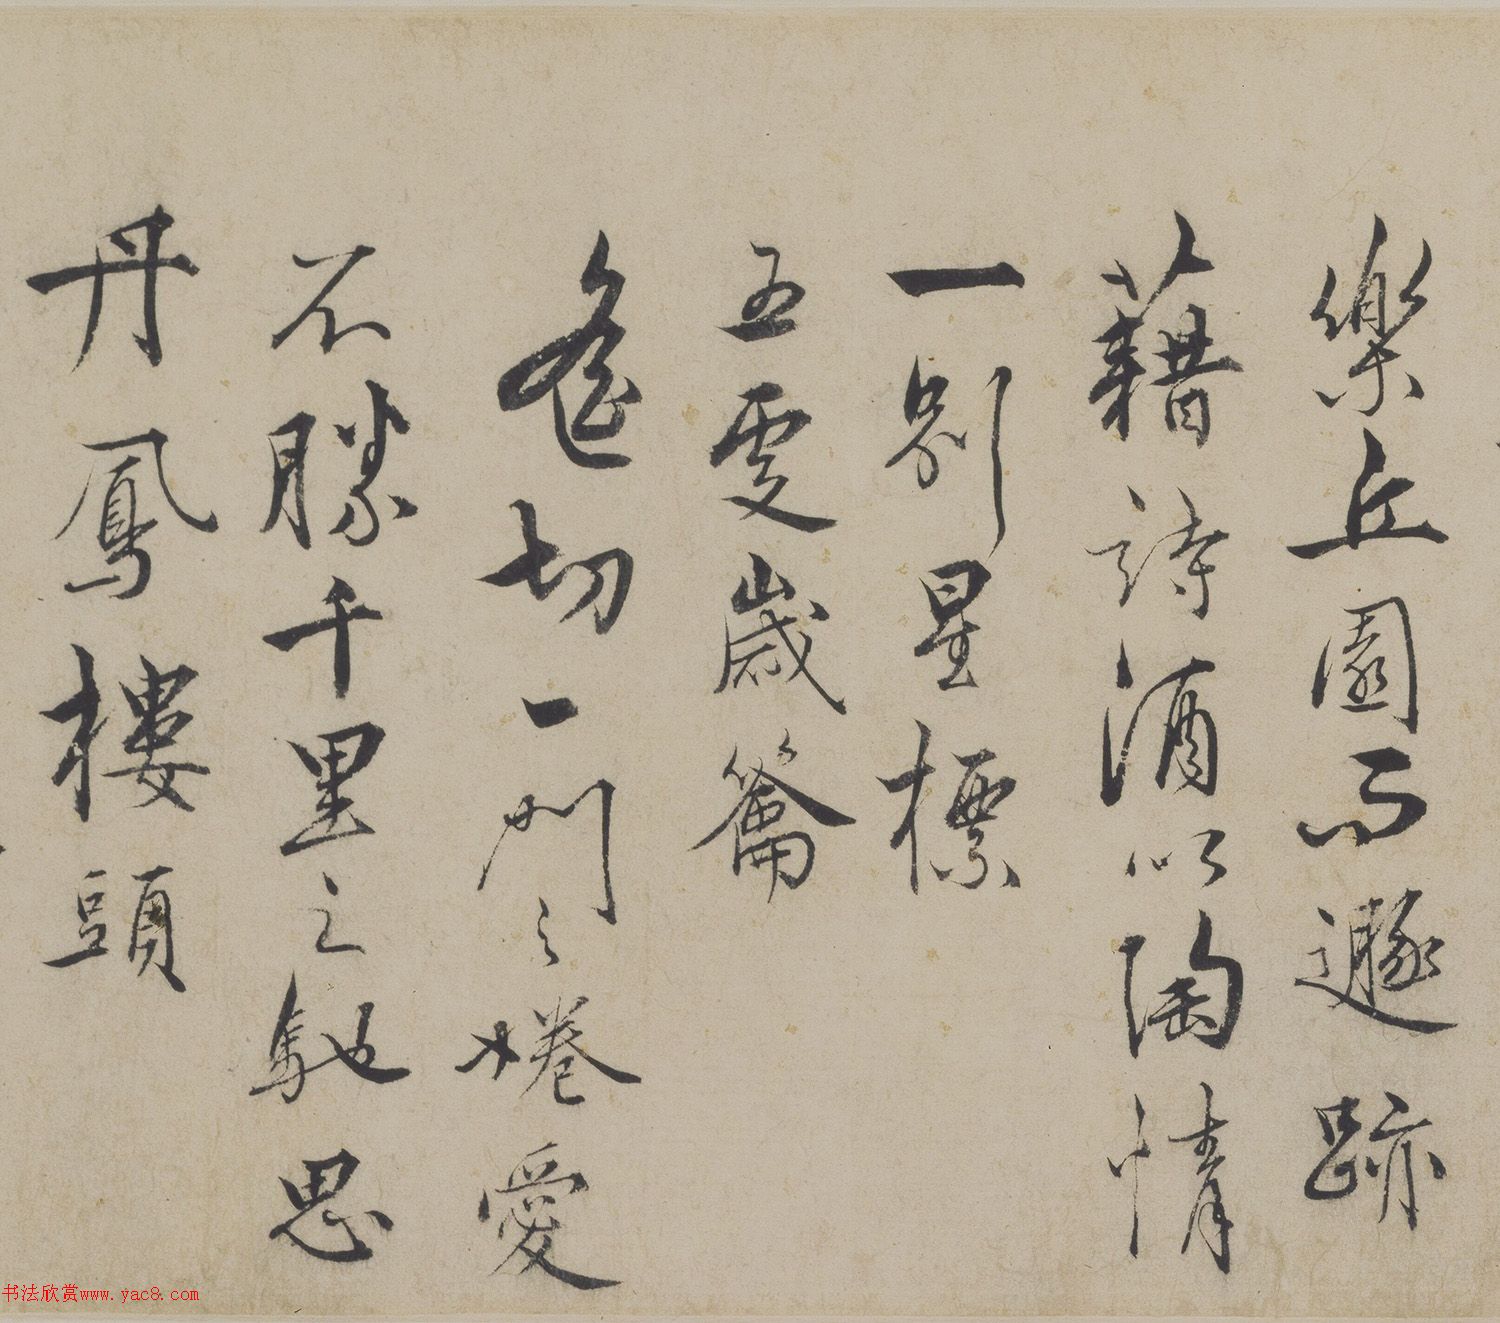 樂丘園而遯跡
藉詩酒以陶情
一別星標
五變歲籥
遙切一門之惓愛
不勝千里之馳思
丹鳳樓頭
书法欣赏www.yac8.com